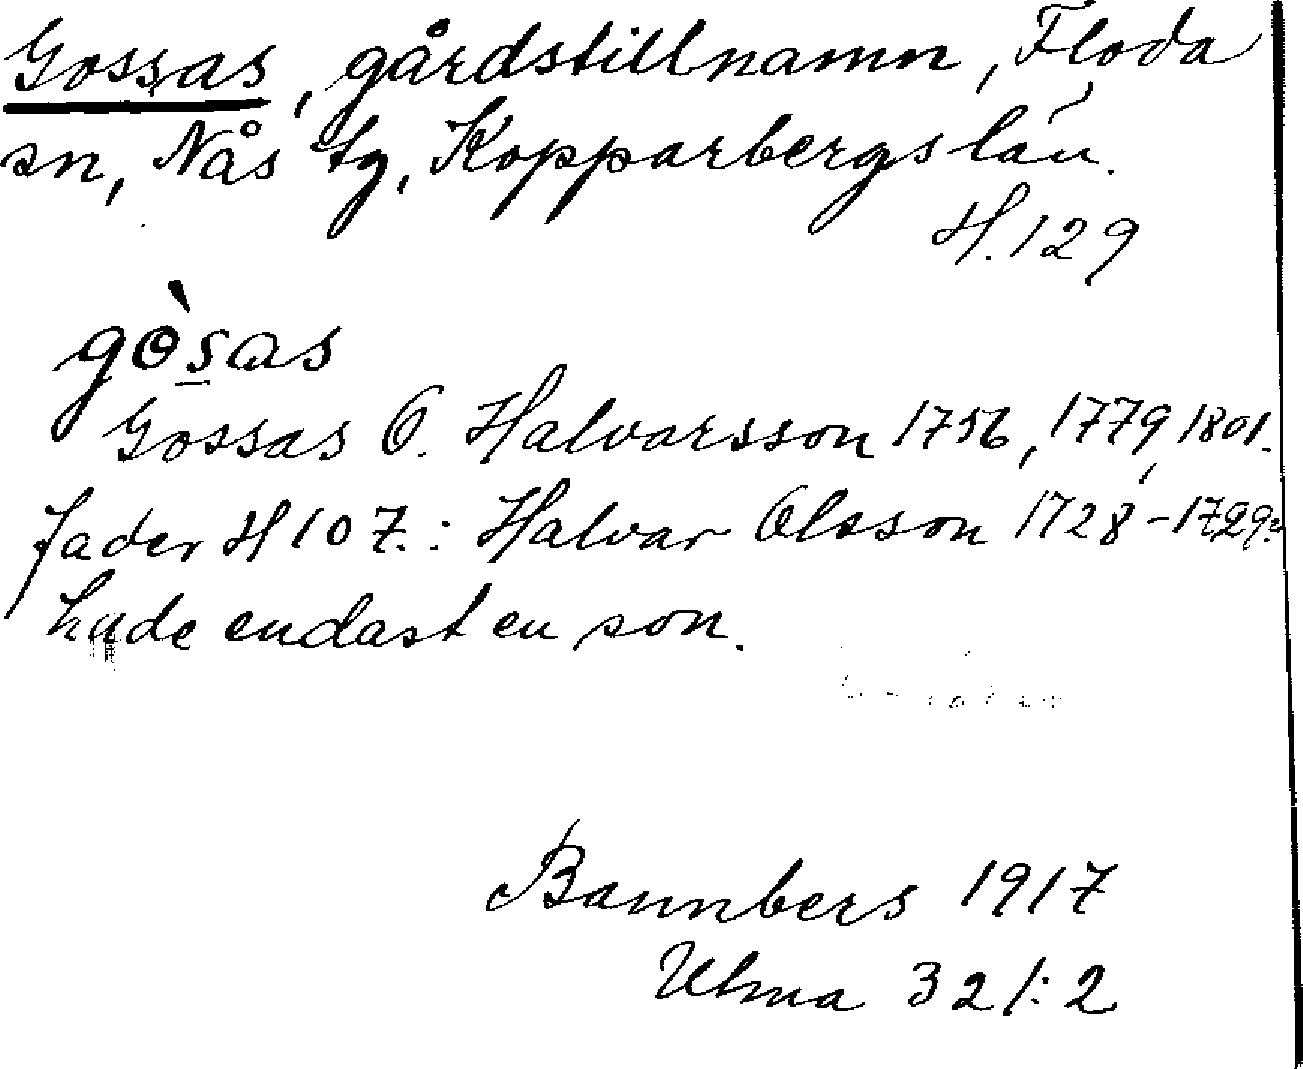 Gossas, gårdstillnamn, Floda
sn, Nås tg, Kopparbergs län.
H. 129
gòsas
Gossas O. Halvarsson 1756, 1779, 1801.
fader H 107.: Halvar Olsson 1728-1729
hade endast en son.
Bannbers 1917
Ulma 321:2